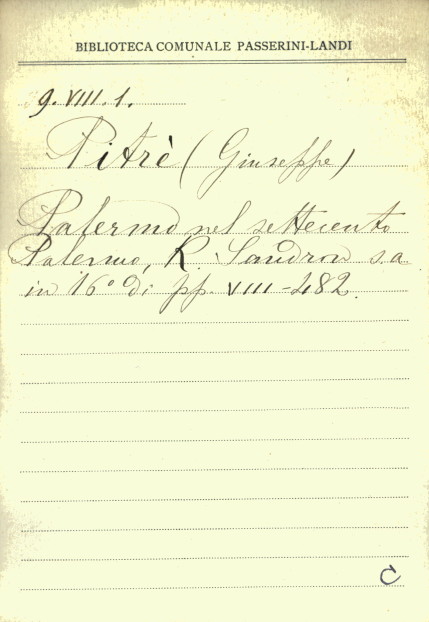 BIBLIOTECA COMUNALE PASSERINI-LANDI
9. VIII. 1.
Pitrè (Giuseppe)
Palermo nel settecento
Palermo, R. Sandron s.a.
in 16° di pp. VIII-482.
C